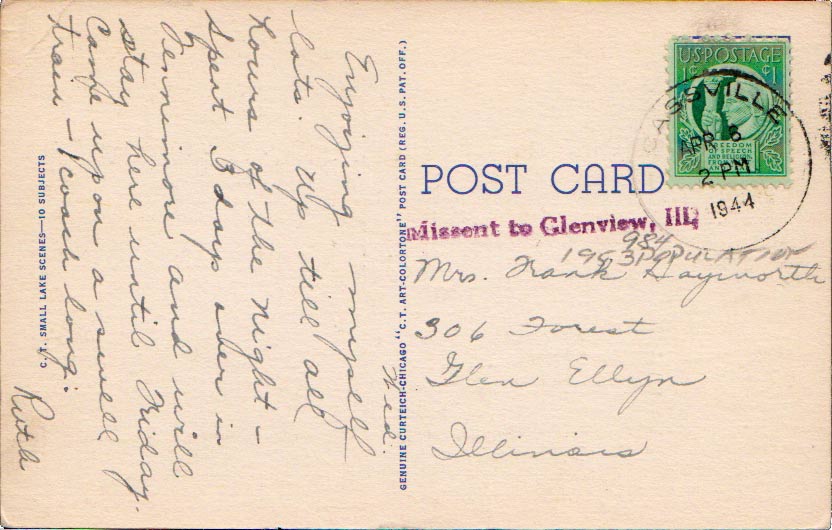 Wed.
Enjoying myself
lots. Up till all
hours of the night –
Spent 3 days over in
Fennimore and will
stay here until Friday.
Came upon a swell
train – 1 coach long.
Ruth
C.T. SMALL LAKE SCENES—10 SUBJECTS
GENUINE CURTEICH-CHICAGO "C.T. ART-COLORTONE" POST CARD (REG. U.S. PAT. OFF.)
U·S·POSTAGE
1¢ ¢1
FREEDOM
OF SPEECH
AND RELIGION,
FROM
CASSVILLE
APR 6
2 PM
1944
POST CARD
Missent to Glenview, Ill.
984
1953 POPULATION
Mrs. Frank Hayworth
306 Forest
Glen Ellyn
Illinois